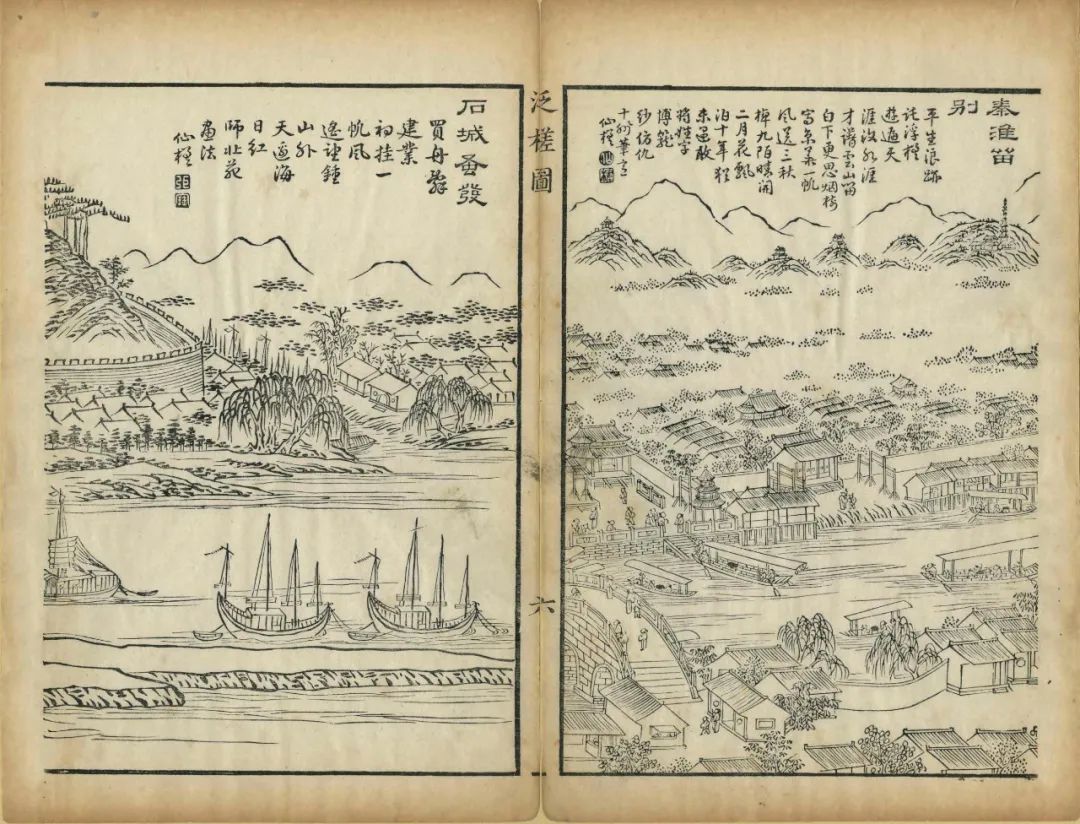 秦淮笛
别
平生浪跡
託浮槎
遊遍天
涯水涯
才譜雲山留
白下更思烟樹
寫京華一帆
風送三秋
棹九陌晴開
二月花飄
泊十年猶
未遇敢
將姓字
博籠
紗仿仇
十洲筆意
仙槎
泛槎圖
六
石城蚤發
買舟辭
建業
初挂一
帆風
遙望鍾
山外
天邊海
日紅
師北苑
畫法
仙槎